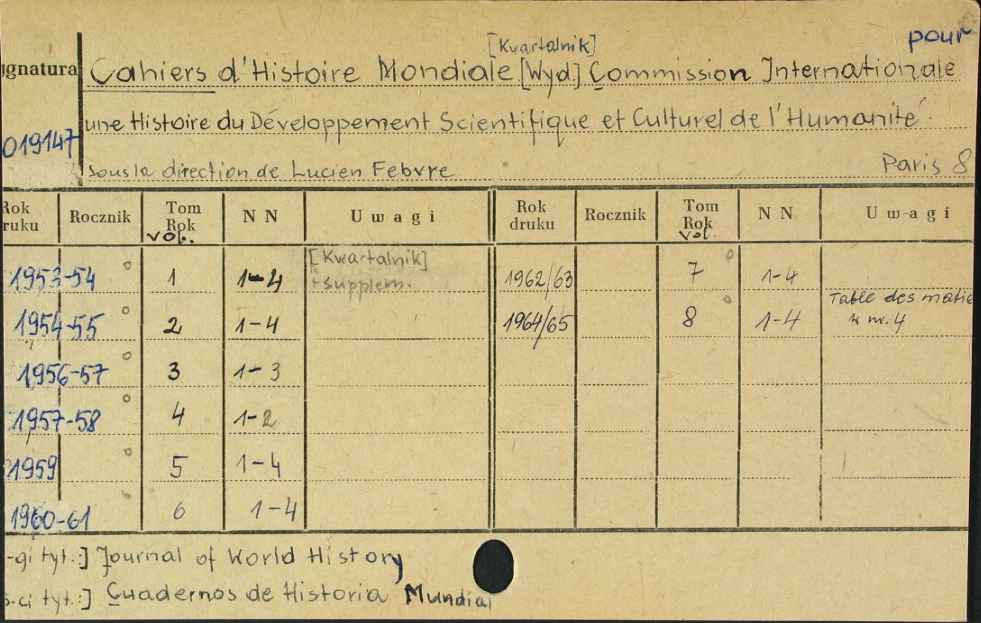 [Kwartalnik] pour
ignatura Cahiers d'Histoire Mondiale [Wyd.] Commission Internationale
une Histoire du Développement Scientifique et Culturel de l'Humanité
019147
sous la direction de Lucien Febvre Paris 8
Rok druku Rocznik Tom Rok vol. N N U w a g i Rok druku Rocznik Tom Rok vol. N N U w a g i
1953-54 1 1-4 [Kwartalnik] + supplem. 1962/63 7 1-4
1954-55 2 1-4 1964/65 8 1-4 Table des matie z nr. 4
1956-57 3 1-3
1957-58 4 1-2
1959 5 1-4
1960-61 6 1-4
-gi tyt.:] Journal of World History
s-ci tyt.:] Cuadernos de Historia Mundial